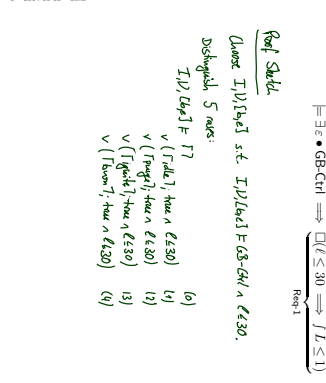 ⊨ ∃ ε • GB-Ctrl ⟹ □(ℓ ≤ 30 ⟹ ∫L ≤ 1)
Req-1
Proof Sketch
Choose I, V, [b,e] s.t. I, V, [b,e] ⊨ GB-Ctrl ∧ ℓ ≤ 30.
Distinguish 5 cases:
I, V, [b,e] ⊨ ⌈⌉ (0)
∨ (⌈idle⌉; true ∧ ℓ ≤ 30) (1)
∨ (⌈purge⌉; true ∧ ℓ ≤ 30) (2)
∨ (⌈ignite⌉; true ∧ ℓ ≤ 30) (3)
∨ (⌈burn⌉; true ∧ ℓ ≤ 30) (4)